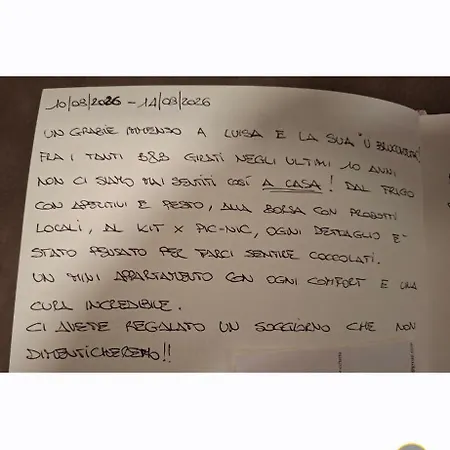 10/08/2026 - 14/08/2026
UN GRAZIE IMMENSO A LUISA E LA SUA "U
FRA I TANTI B&B GIRATI NEGLI ULTIMI 10 ANNI
NON CI SIAMO MAI SENTITI COSÍ A CASA! DAL FRIGO
CON APERITIVI E PESTO, ALLA BORSA CON PRODOTTI
LOCALI, AL KIT X PIC-NIC, OGNI DETTAGLIO E'
STATO PENSATO PER FARCI SENTIRE COCCOLATI.
UN MINI APPARTAMENTO CON OGNI COMFORT E UNA
CURA INCREDIBILE.
CI AVETE REGALATO UN SOGGIORNO CHE NON
DIMENTICHEREMO!!